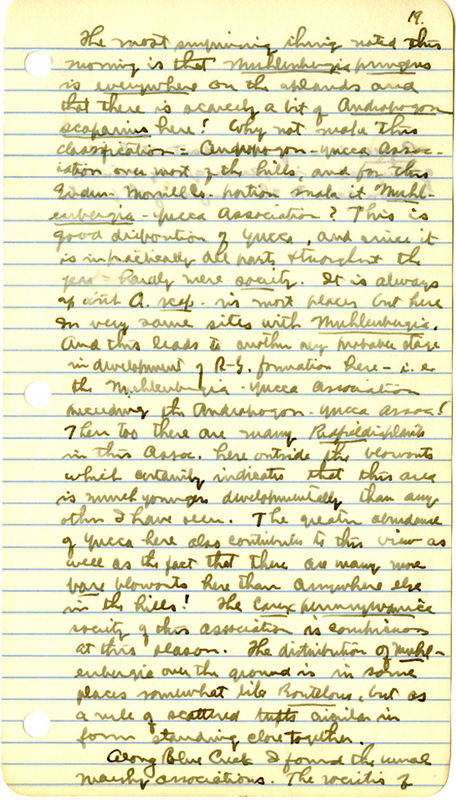 19.
The most surprising thing noted this
morning is that Muhlenbergia pungens
is everywhere on the uplands and
that there is scarcely a bit of Andropogon
scoparius here! Why not make this
classification = Andropogon-Yucca Assoc-
iation over most of the hills, and for this
Garden-Morrill Co. portion make it Muhl-
enbergia-Yucca Association? This is
good disposition of Yucca, and since it
is in practically all parts throughout the
year hardly mere society. It is always
up with A. scop. in most places but here
in very same sites with Muhlenbergia.
And this leads to another very probable stage
in development of R-G. formation here - i.e.
the Muhlenbergia-Yucca Association
preceding the Andropogon-Yucca Assoc!
Then too there are many Redfieldia plants
in this Assoc. here outside the blowouts
which certainly indicates that this area
is much younger developmentally than any
other I have seen. The greater abundance
of Yucca here also contributes to this view as
well as the fact that there are many more
bare blowouts here than anywhere else
in the hills! The Carex pennsylvanica
society of this association is conspicuous
at this season. The distribution of Muhl-
enbergia over the ground is in some
places somewhat like Bouteloua, but as
a rule of scattered tufts circular in
form standing close together.
Along Blue Creek I found the usual
marshy associations. The societies of